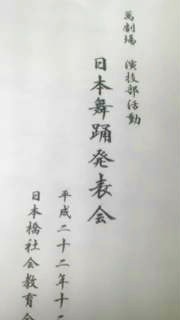 萬劇場 演技部活動
日本舞踊発表会
平成二十二年十二
日本橋社会教育会